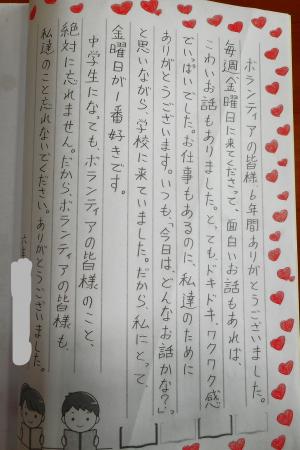 ボランティアの皆様、6年間ありがとうございました。
毎週金曜日に来てくださって、面白いお話もあれば、
こわいお話もありました。とってもドキドキ、ワクワク感
でいっぱいでした。お仕事もあるのに、私達のために
ありがとうございます。いつも、「今日は、どんなお話かな?」
と思いながら、学校に来ていました。だから、私にとって、
金曜日が1番好きです。
中学生になっても、ボランティアの皆様のこと、
絶対に忘れません。だから、ボランティアの皆様も、
私達のこと忘れないでください。ありがとうございました。